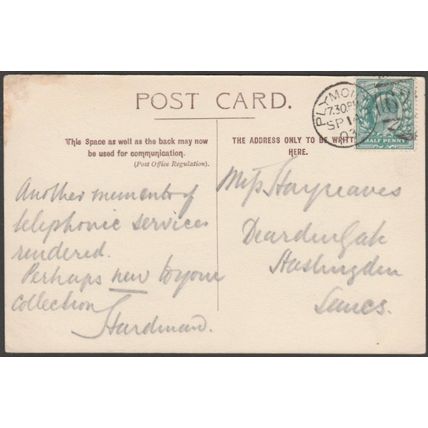 POST CARD.
This Space as well as the back may now
be used for communication.
(Post Office Regulation).
THE ADDRESS ONLY TO BE WRITTEN
HERE.
PLYMO
7.30 P
SP 1
HALF PENNY
Another memento of
telephonic services
rendered.
Perhaps new to your
collection
Hardman.
Miss Hargreaves
Dearden Gate
Haslingden
Lancs.